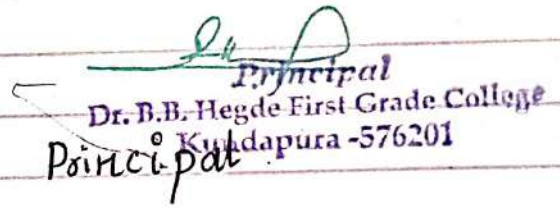 Principal
Dr. B.B. Hegde First Grade College
Kundapura -576201
Principal